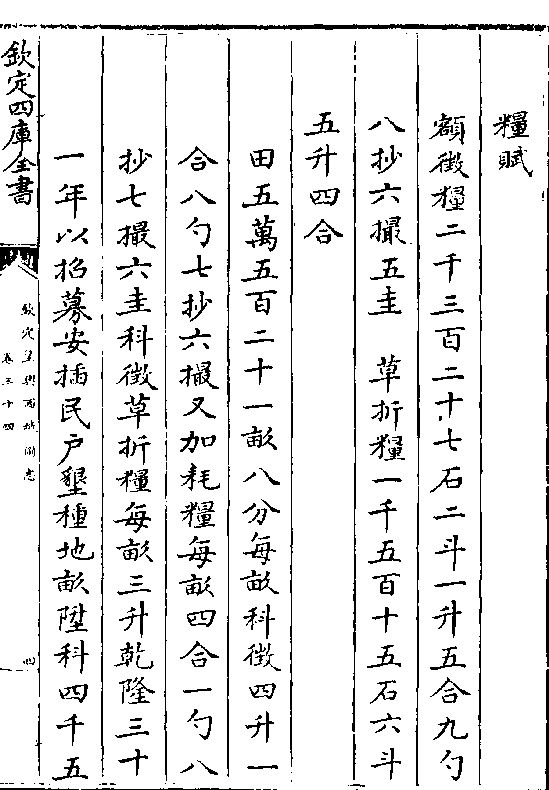 糧賦
額徴糧二千三百二十七石二斗一升五合九勺
八抄六撮五圭　草折糧一千五百十五石六斗
五升四合
田五萬五百二十一畝八分每畝科徴四升一
合八勺七抄六撮又加耗糧每畝四合一勺八
抄七撮六圭科徴草折糧每畝三升乾隆三十
一年以招募安插民戶墾種地畝陞科四千五
欽定四庫全書
欽定皇輿西域圖志
卷三十四
四